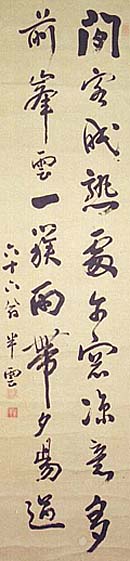 閑客眠熟處窓凉意多
前峯雲一簇雨帶夕陽過
六十六翁半雲